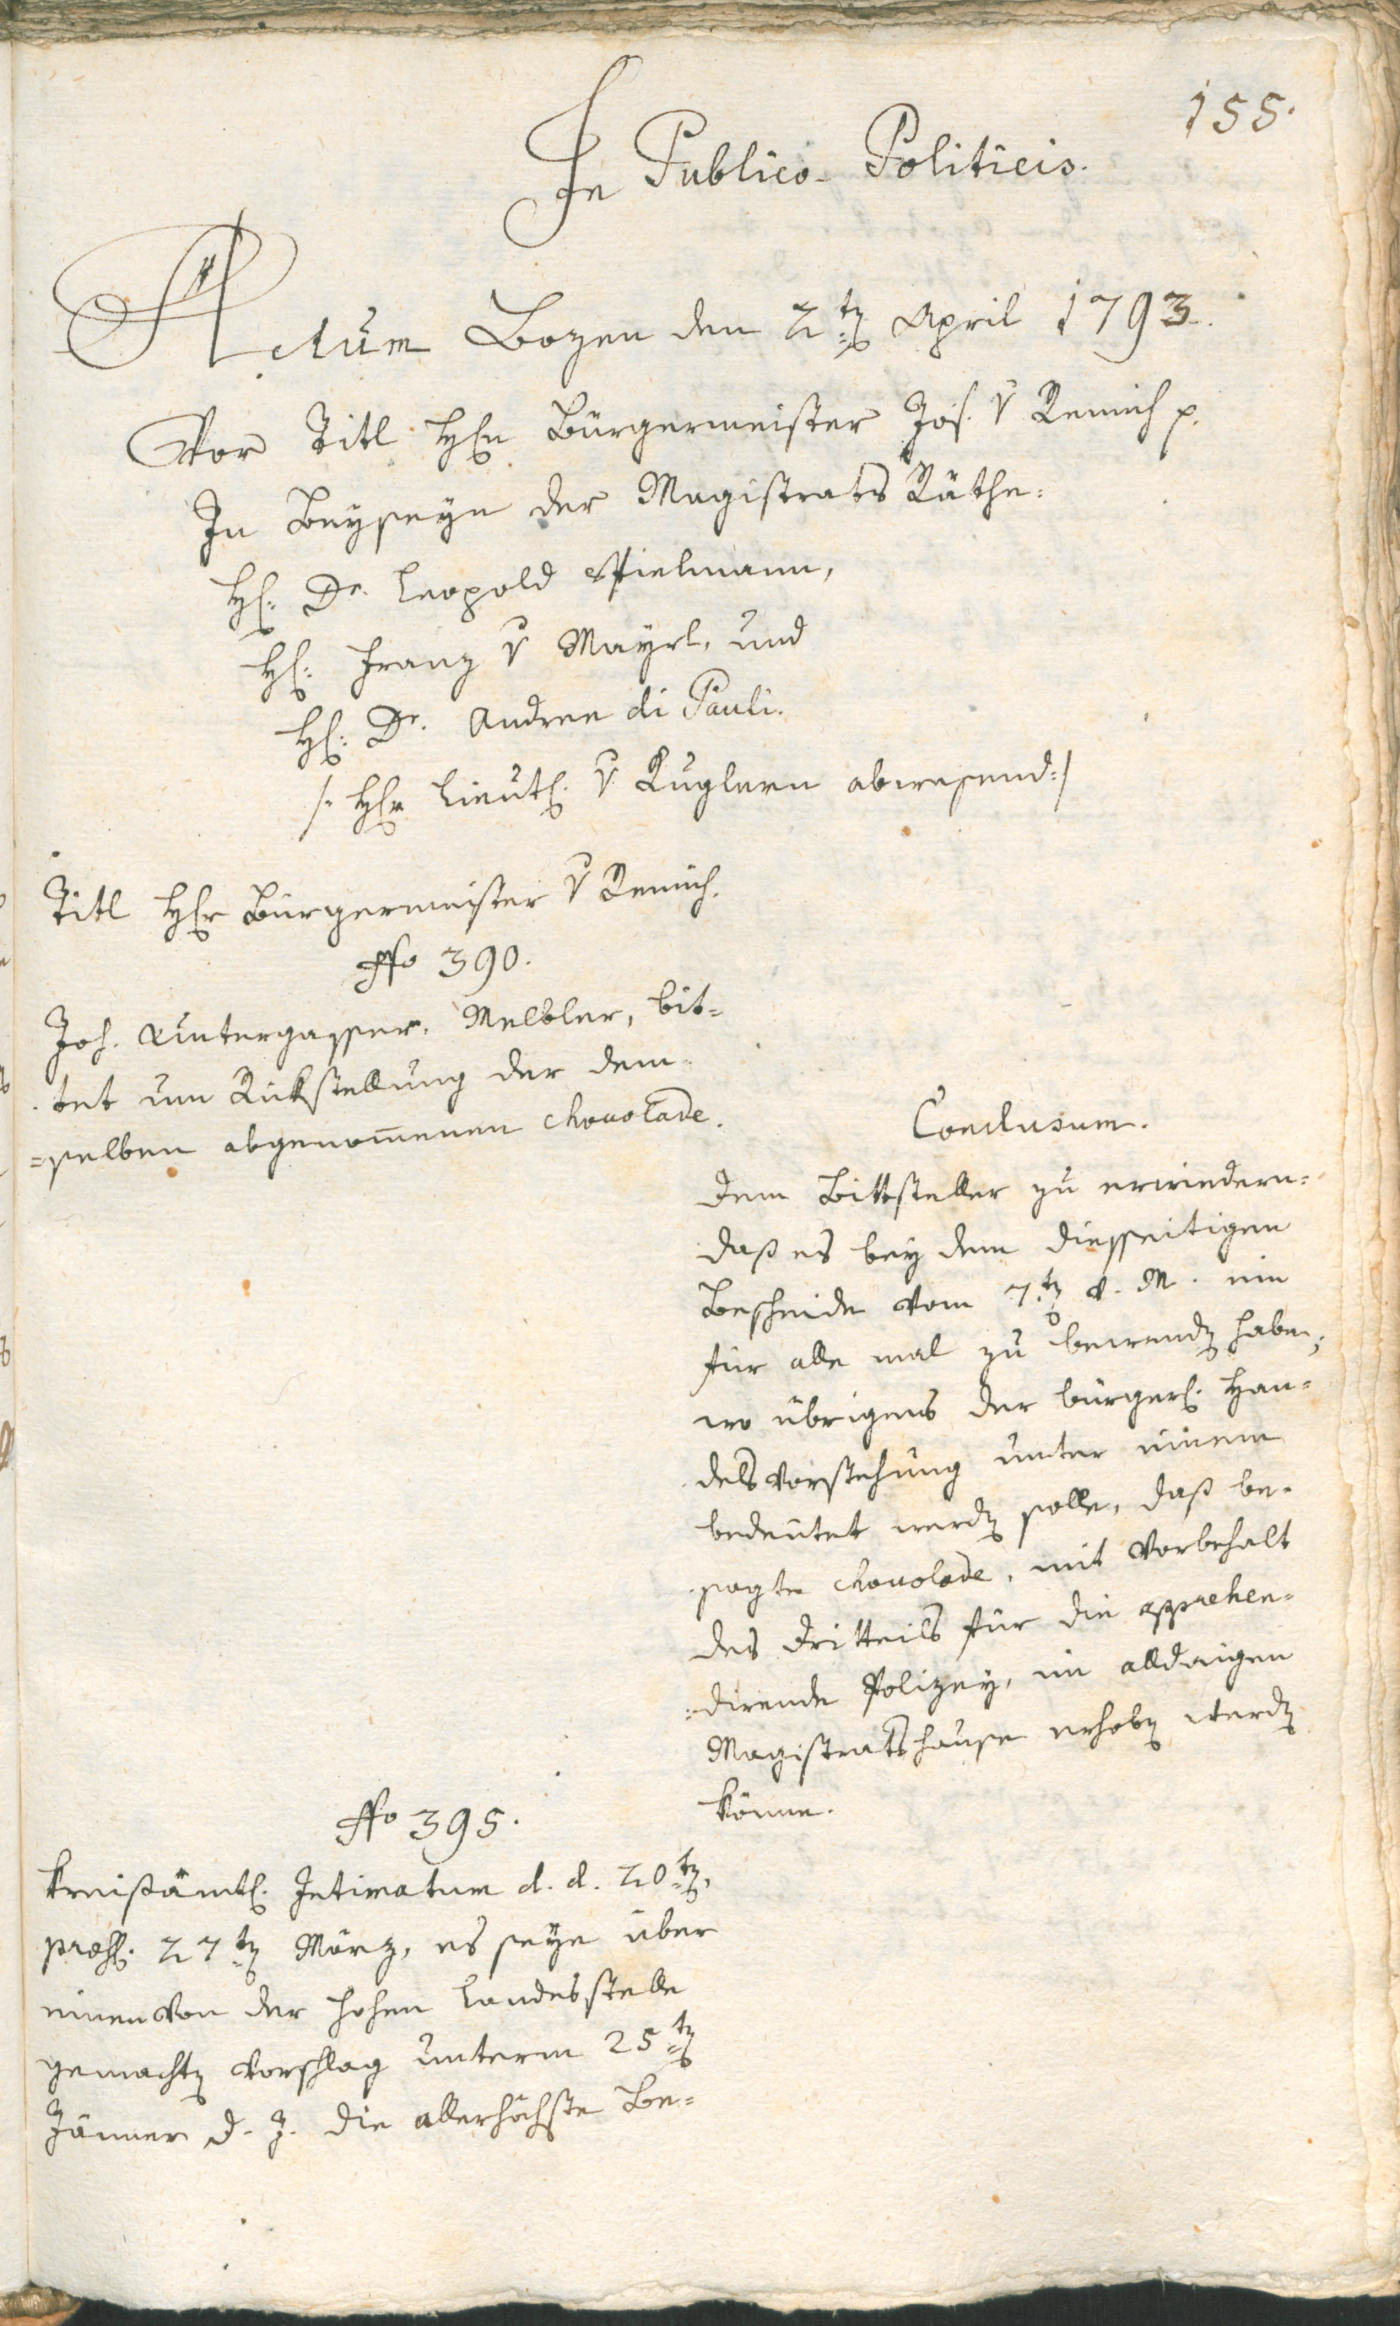 155.
In Publico-Politicis.
Actum Bozen den 2ten April 1793.
Vor Titl Hrn Bürgermeister Jos. v Remich p.
In Beyseyn der Magistrats Räthe:
Hr. Dr. Leopold Spielmann,
Hr. Franz v Mayrl, und
Hr. Dr. Andree di Pauli.
/: Hr Lieut. v Kuglern abwesend :/
Titl Hr Bürgermeister v Remich.
No 390.
Joh. Untergasser, Melbler, bit-
tet um Rückstellung der dem-
=selben abgenommenen chocolade.
Conclusum.
Dem Bittsteller zu erwiedern:
daß es bey dem diesseitigen
Bescheide vom 7ten v. M. ein
für alle mal zu bewenden habe;
wo übrigens der bürgerl. Han-
delsvorstehung unter einem
bedeutet werden solle, daß be-
sagte chocolade, mit Vorbehalt
des Drittels für die apprehen-
=dirende Polizey, im alldaigen
Magistratshause erhoben werden
könne.
No 395.
Kreisämtl. Intimatum d. d. 20ten,
praes. 27ten März, es seye über
einen von der hohen Landesstelle
gemachten Vorschlag unterm 25ten
Jänner d. J. die allerhöchste Be-